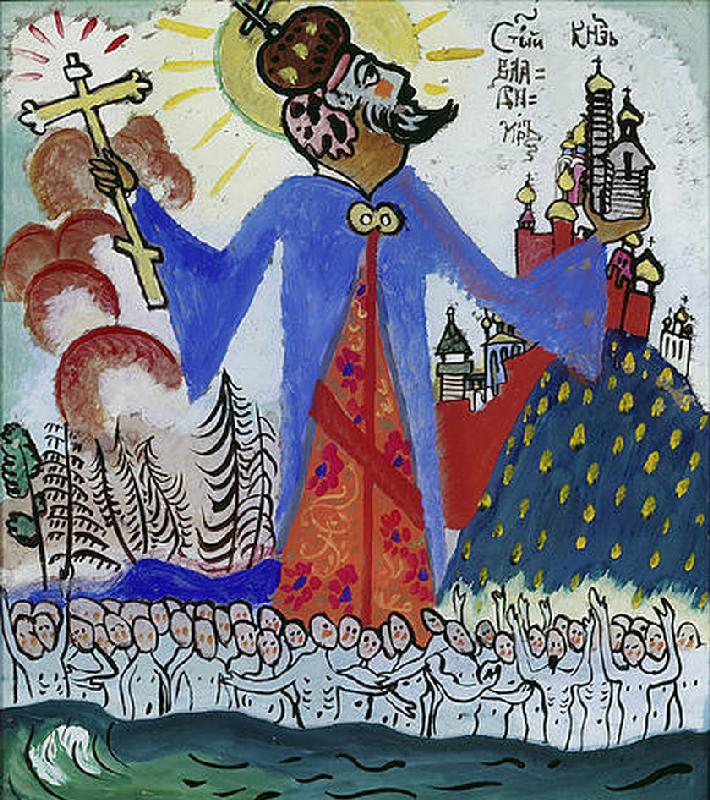 Стый Кнзь
Вла=
ди=
міръ